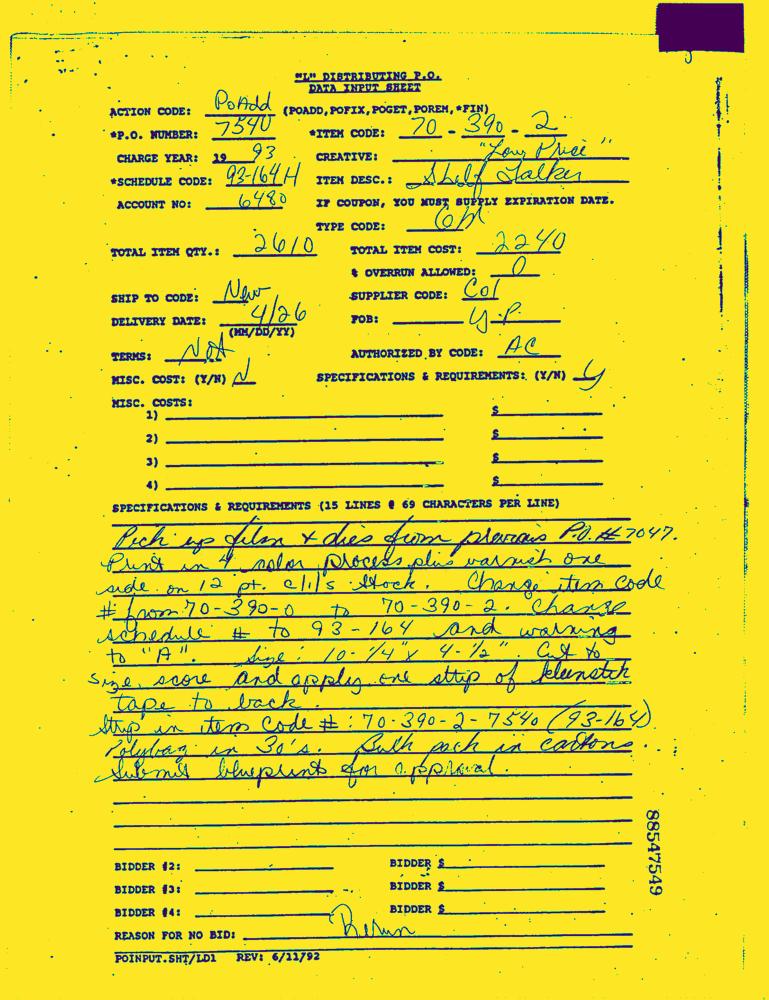 "L" DISTRIBUTING P.O.
DATA INPUT SHEET
ACTION CODE: PoAdd (POADD,POFIX,POGET,POREM,*FIN)
*P.O. NUMBER: 7540 *ITEM CODE: 70 - 390 - 2
CHARGE YEAR: 19 93 CREATIVE: "Low Price"
*SCHEDULE CODE: 93-164H ITEM DESC.: Shelf Talker
ACCOUNT NO: 6480 IF COUPON, YOU MUST SUPPLY EXPIRATION DATE.
TYPE CODE: 6M
TOTAL ITEM QTY.: 2610 TOTAL ITEM COST: 2240
% OVERRUN ALLOWED: 0
SHIP TO CODE: New SUPPLIER CODE: Col
DELIVERY DATE: 4/26 FOB:
(MM/DD/YY)
TERMS: Not AUTHORIZED BY CODE: AC
MISC. COST: (Y/N) N SPECIFICATIONS & REQUIREMENTS: (Y/N) Y
MISC. COSTS:
1) $
2) $
3) $
4) $
SPECIFICATIONS & REQUIREMENTS (15 LINES @ 69 CHARACTERS PER LINE)
Pick up film + dies from previous P.O. # 7047.
Print in 4 color process plus varnish one
side on 12 pt. c/1/s stock. Change item code
# from 70-390-0 to 70-390-2. Change
schedule # to 93-164 and warning
to "A". Size: 10-1/4" x 4-1/2". Cut to
size, score and apply one strip of kleenstik
tape to back.
Strip in item code #: 70-390-2-7540 (93-164)
Polybag in 30's. Bulk pack in cartons.
Submit blueprint for approval.
88547549
BIDDER #2: BIDDER $
BIDDER #3: BIDDER $
BIDDER #4: BIDDER $
REASON FOR NO BID: Rerun
POINPUT.SHT/LD1 REV: 6/11/92